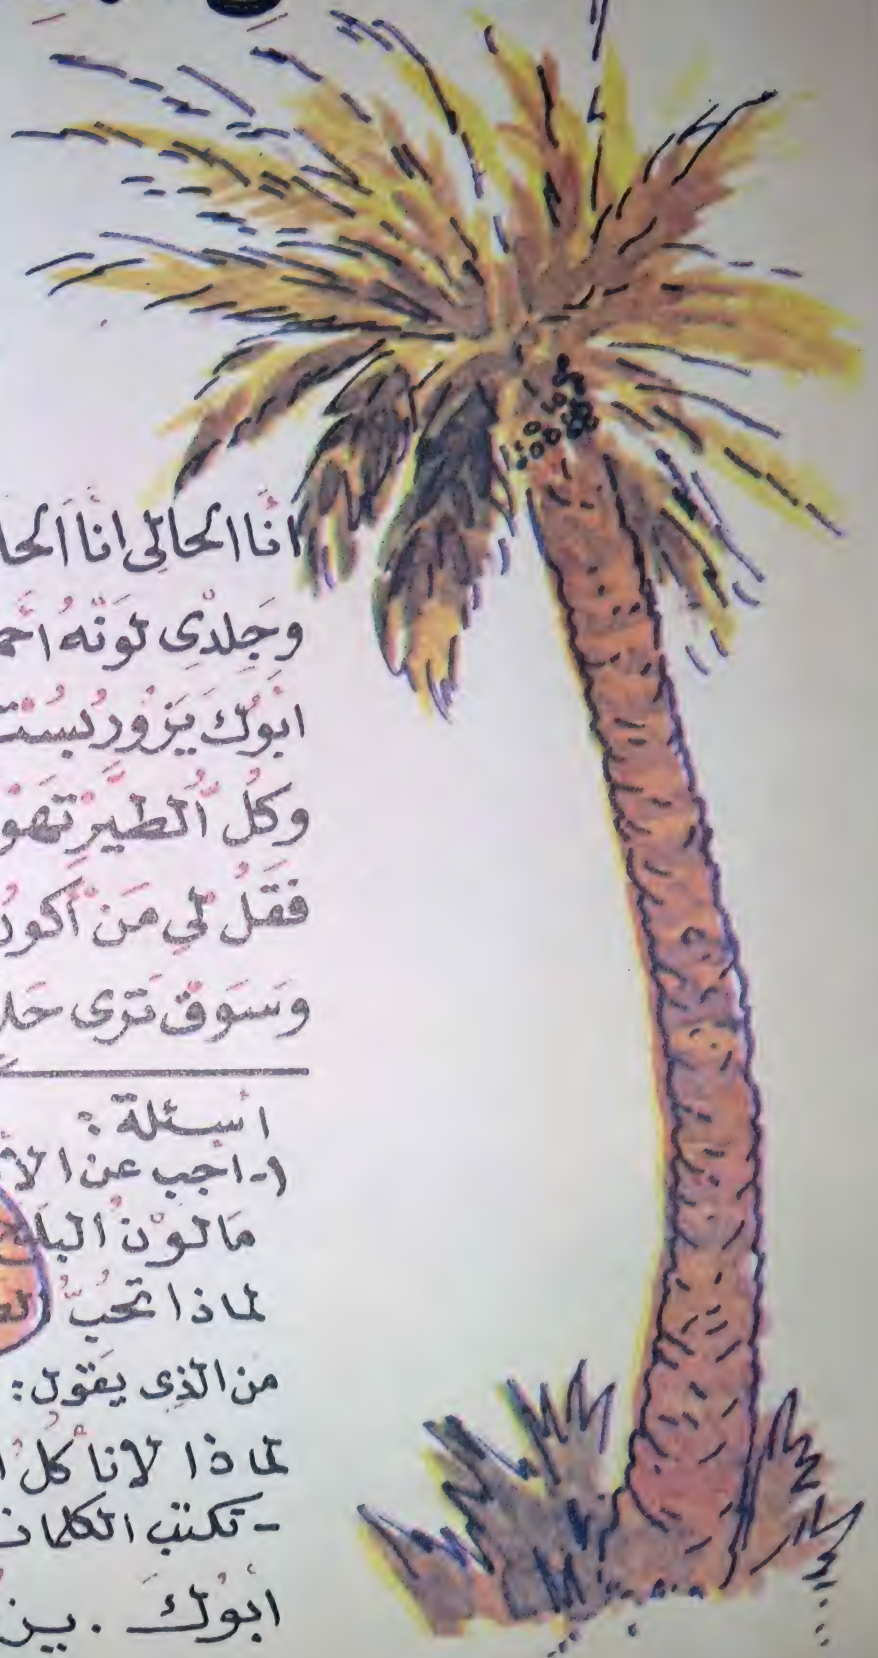 أنا الحالي أنا الحا
وجلدي لونه أحم
ابوك يزور بست
وكل الطير تهو
فقل لي من أكون
وسوف ترى حلا
اسئلة :
١- اجب عن الأ
مالون البلح
لماذا تحب الط
من الذي يقول :
لماذا لانأكل ا
- تكتب الكلمات
ابوك . يز